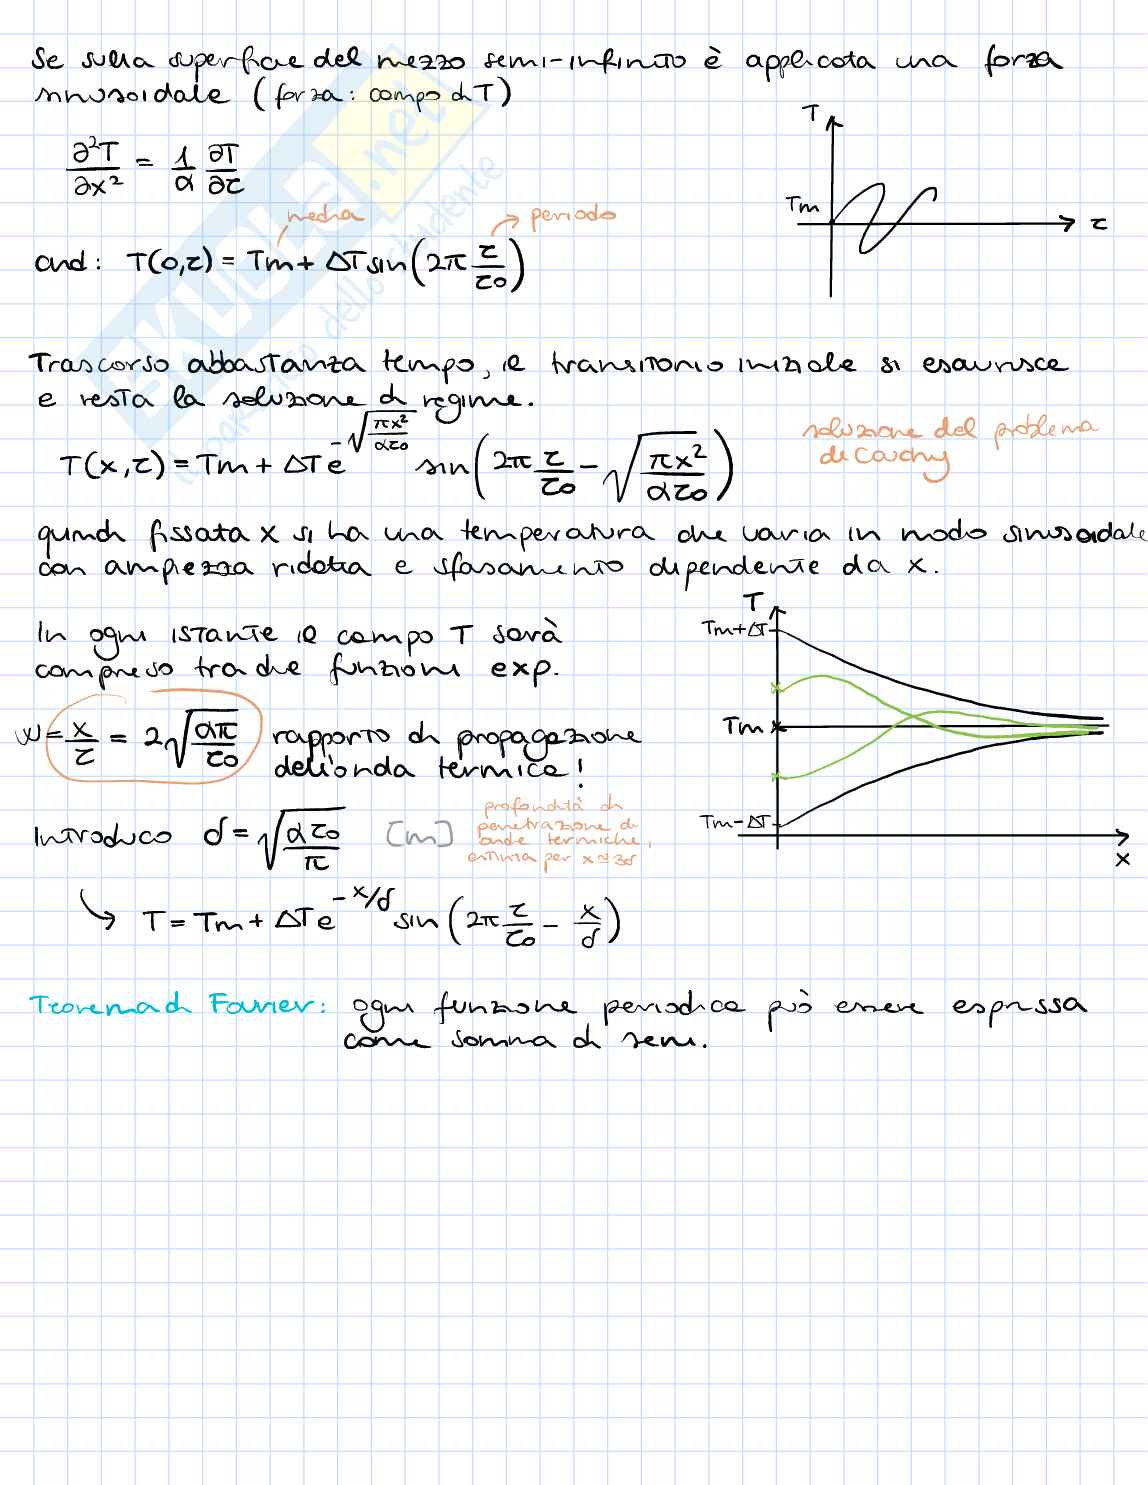 Se sulla superficie del mezzo semi-infinito è applicata una forza
sinusoidale (forza: campo di T)
∂²T/∂x² = 1/α ∂T/∂τ
T
Tm
τ
media
periodo
and: T(0,τ) = Tm + ΔT sin(2π τ/τ0)
Trascorso abbastanza tempo, il transitorio iniziale si esaurisce
e resta la soluzione di regime.
T(x,τ) = Tm + ΔT e^(-√(πx²/ατ0)) sin(2π τ/τ0 - √(πx²/ατ0))
soluzione del problema
di Cauchy
quindi fissata x si ha una temperatura che varia in modo sinusoidale
con ampiezza ridotta e sfasamento dipendente da x.
In ogni istante il campo T sarà
compreso tra due funzioni exp.
T
Tm+ΔT
Tm
Tm-ΔT
x
w = x/τ = 2√(απ/τ0) rapporto di propagazione
dell'onda termica!
Introduco δ = √(ατ0/π) [m]
profondità di
penetrazione di
onde termiche,
estinta per x≃3δ
T = Tm + ΔT e^(-x/δ) sin(2π τ/τ0 - x/δ)
Teorema di Fourier: ogni funzione periodica può essere espressa
come somma di seni.
SKUOLA.net
dello studente